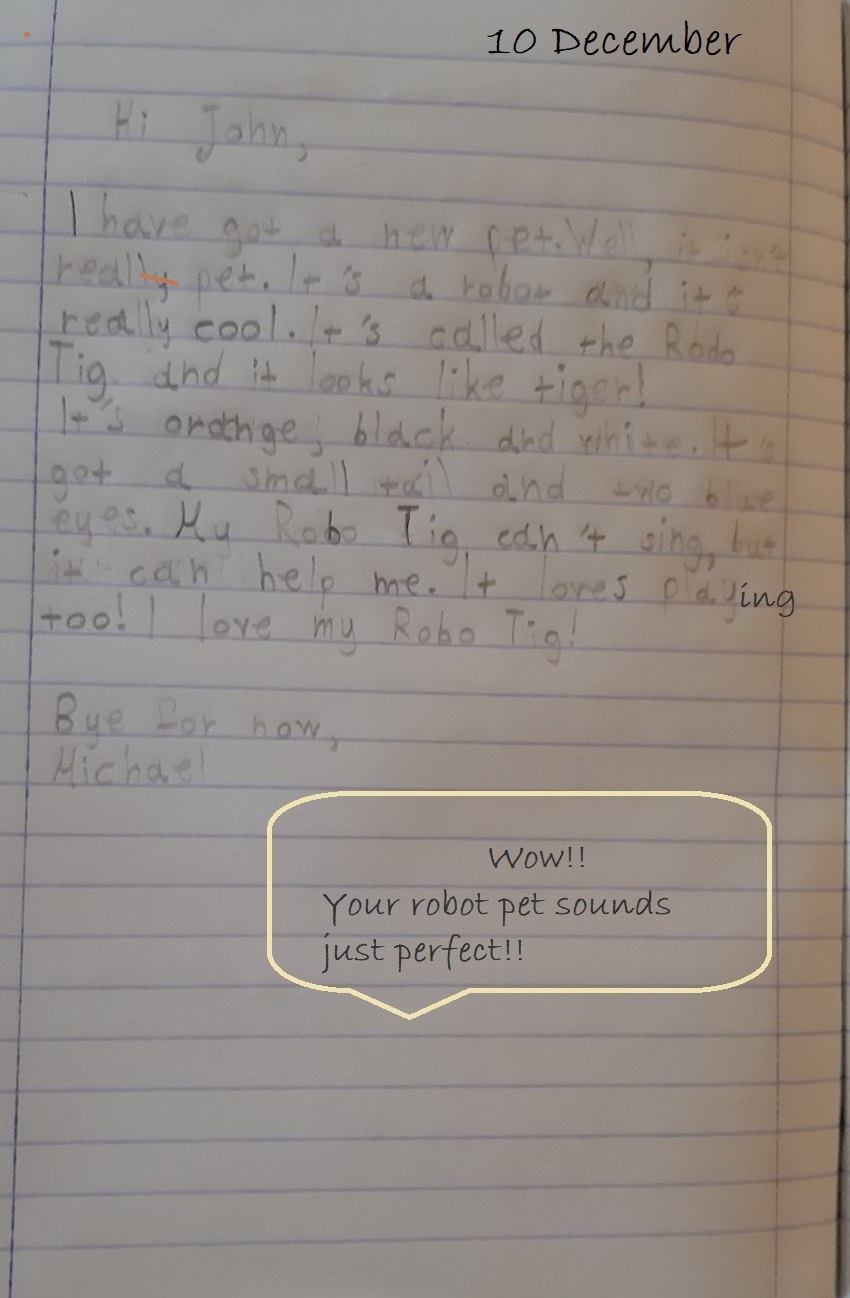 10 December
Hi John,
I have got a new pet. Well, it isn't
really pet. It's a robot and it's
really cool. It's called the Robo
Tig and it looks like tiger!
It's orange, black and white. It's
got a small tail and two blue
eyes. My Robo Tig can't sing, but
it can help me. It loves playing
too! I love my Robo Tig!
Bye for now,
Michael
Wow!!
Your robot pet sounds
just perfect!!